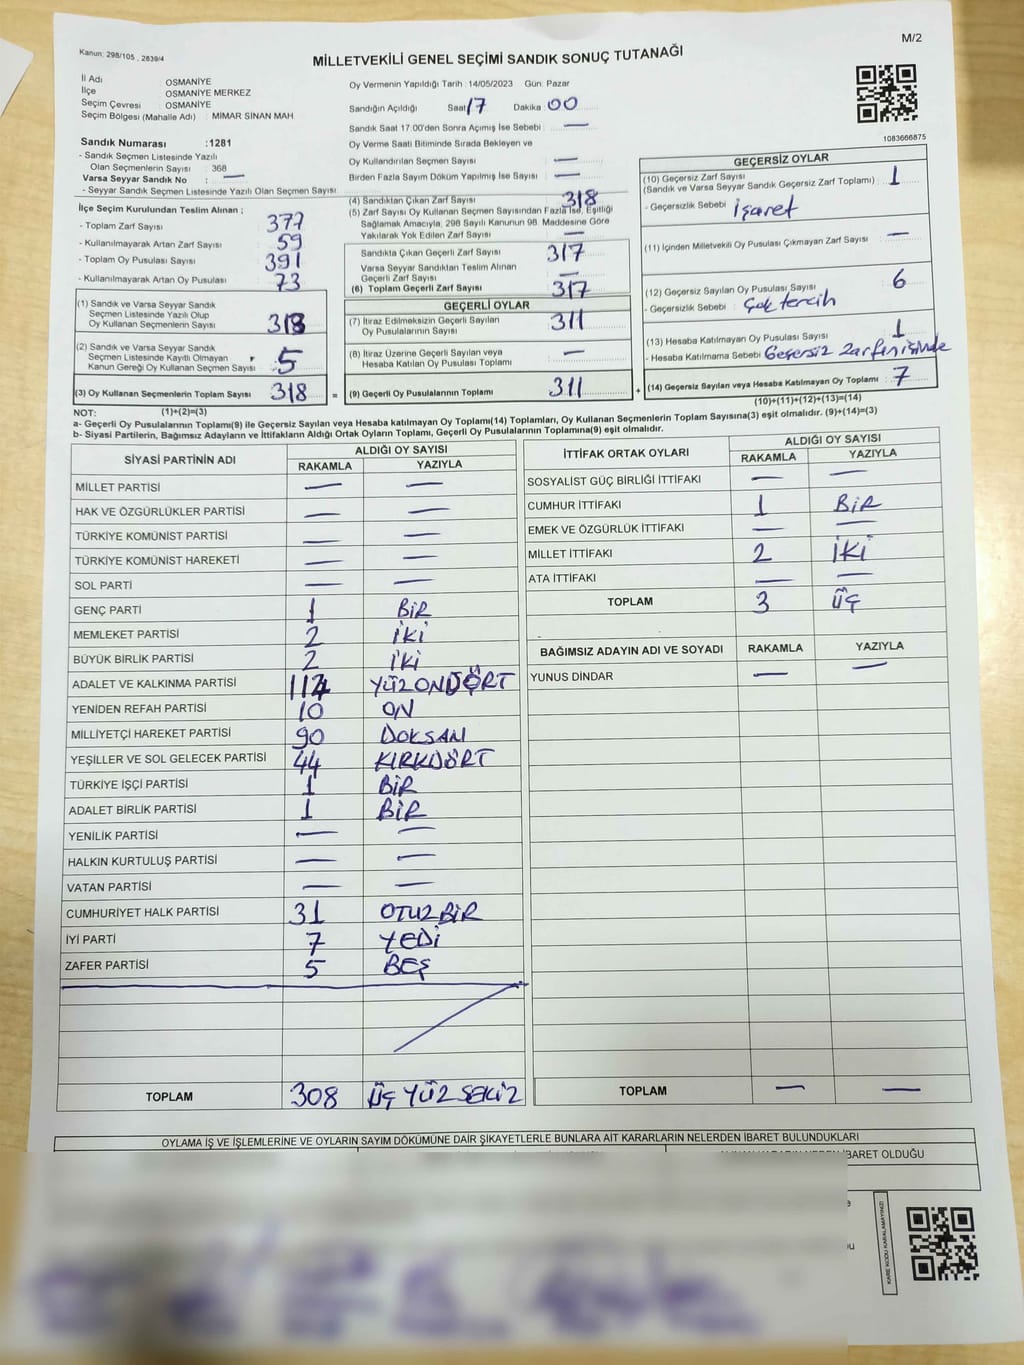 Kanun: 298/105 , 2839/4
M/2
MİLLETVEKİLİ GENEL SEÇİMİ SANDIK SONUÇ TUTANAĞI
İl Adı OSMANİYE
İlçe OSMANİYE MERKEZ
Seçim Çevresi : OSMANİYE
Seçim Bölgesi (Mahalle Adı) : MİMAR SİNAN MAH
Sandık Numarası :1281
- Sandık Seçmen Listesinde Yazılı
Olan Seçmenlerin Sayısı : 368
Varsa Seyyar Sandık No : —
- Seyyar Sandık Seçmen Listesinde Yazılı Olan Seçmen Sayısı
Oy Vermenin Yapıldığı Tarih : 14/05/2023 Gün: Pazar
Sandığın Açıldığı Saat 17 Dakika: 00
Sandık Saat 17.00'den Sonra Açımış İse Sebebi : —
Oy Verme Saati Bitiminde Sırada Bekleyen ve
Oy Kullandırılan Seçmen Sayısı : —
Birden Fazla Sayım Döküm Yapılmış İse Sayısı : —
1083666875
İlçe Seçim Kurulundan Teslim Alınan ;
- Toplam Zarf Sayısı : 377
- Kullanılmayarak Artan Zarf Sayısı : 59
- Toplam Oy Pusulası Sayısı : 391
- Kullanılmayarak Artan Oy Pusulası : 73
(1) Sandık ve Varsa Seyyar Sandık
Seçmen Listesinde Yazılı Olup
Oy Kullanan Seçmenlerin Sayısı : 313
(2) Sandık ve Varsa Seyyar Sandık
Seçmen Listesinde Kayıtlı Olmayan
Kanun Gereği Oy Kullanan Seçmen Sayısı : 5
(3) Oy Kullanan Seçmenlerin Toplam Sayısı : 318
(4) Sandıktan Çıkan Zarf Sayısı : 318
(5) Zarf Sayısı Oy Kullanan Seçmen Sayısından Fazla İse, Eşitliği
Sağlamak Amacıyla; 298 Sayılı Kanunun 98. Maddesine Göre
Yakılarak Yok Edilen Zarf Sayısı : —
Sandıkta Çıkan Geçerli Zarf Sayısı : 317
Varsa Seyyar Sandıktan Teslim Alınan
Geçerli Zarf Sayısı : —
(6) Toplam Geçerli Zarf Sayısı : 317
GEÇERLİ OYLAR
(7) İtiraz Edilmeksizin Geçerli Sayılan
Oy Pusulalarının Sayısı : 311
(8) İtiraz Üzerine Geçerli Sayılan veya
Hesaba Katılan Oy Pusulaları Toplamı : —
= (9) Geçerli Oy Pusulalarının Toplamı : 311
GEÇERSİZ OYLAR
(10) Geçersiz Zarf Sayısı
(Sandık ve Varsa Seyyar Sandık Geçersiz Zarf Toplamı) : 1
- Geçersizlik Sebebi : işaret
(11) İçinden Milletvekili Oy Pusulası Çıkmayan Zarf Sayısı : —
(12) Geçersiz Sayılan Oy Pusulası Sayısı : 6
- Geçersizlik Sebebi : Çok tercih
(13) Hesaba Katılmayan Oy Pusulası Sayısı : 1
- Hesaba Katılmama Sebebi : Geçersiz zarfın içinde
+ (14) Geçersiz Sayılan veya Hesaba Katılmayan Oy Toplamı : 7
(10)+(11)+(12)+(13)=(14)
NOT: (1)+(2)=(3)
a- Geçerli Oy Pusulalarının Toplamı(9) ile Geçersiz Sayılan veya Hesaba katılmayan Oy Toplamı(14) Toplamları, Oy Kullanan Seçmenlerin Toplam Sayısına(3) eşit olmalıdır. (9)+(14)=(3)
b- Siyasi Partilerin, Bağımsız Adayların ve İttifakların Aldığı Ortak Oyların Toplamı, Geçerli Oy Pusulalarının Toplamına(9) eşit olmalıdır.
SİYASİ PARTİNİN ADI ALDIĞI OY SAYISI
RAKAMLA YAZIYLA
MİLLET PARTİSİ — —
HAK VE ÖZGÜRLÜKLER PARTİSİ — —
TÜRKİYE KOMÜNİST PARTİSİ — —
TÜRKİYE KOMÜNİST HAREKETİ — —
SOL PARTİ — —
GENÇ PARTİ 1 BİR
MEMLEKET PARTİSİ 2 İKİ
BÜYÜK BİRLİK PARTİSİ 2 İKİ
ADALET VE KALKINMA PARTİSİ 114 YÜZONDÖRT
YENİDEN REFAH PARTİSİ 10 ON
MİLLİYETÇİ HAREKET PARTİSİ 90 DOKSAN
YEŞİLLER VE SOL GELECEK PARTİSİ 44 KIRKDÖRT
TÜRKİYE İŞÇİ PARTİSİ 1 BİR
ADALET BİRLİK PARTİSİ 1 BİR
YENİLİK PARTİSİ — —
HALKIN KURTULUŞ PARTİSİ — —
VATAN PARTİSİ — —
CUMHURİYET HALK PARTİSİ 31 OTUZBİR
İYİ PARTİ 7 YEDİ
ZAFER PARTİSİ 5 BEŞ
TOPLAM 308 ÜÇ YÜZ SEKİZ
İTTİFAK ORTAK OYLARI ALDIĞI OY SAYISI
RAKAMLA YAZIYLA
SOSYALİST GÜÇ BİRLİĞİ İTTİFAKI — —
CUMHUR İTTİFAKI 1 BİR
EMEK VE ÖZGÜRLÜK İTTİFAKI — —
MİLLET İTTİFAKI 2 İKİ
ATA İTTİFAKI — —
TOPLAM 3 ÜÇ
BAĞIMSIZ ADAYIN ADI VE SOYADI RAKAMLA YAZIYLA
YUNUS DİNDAR — —
TOPLAM — —
OYLAMA İŞ VE İŞLEMLERİNE VE OYLARIN SAYIM DÖKÜMÜNE DAİR ŞİKAYETLERLE BUNLARA AİT KARARLARIN NELERDEN İBARET BULUNDUKLARI
İBARET OLDUĞU
KARE KODU KARALAMAYINIZ!